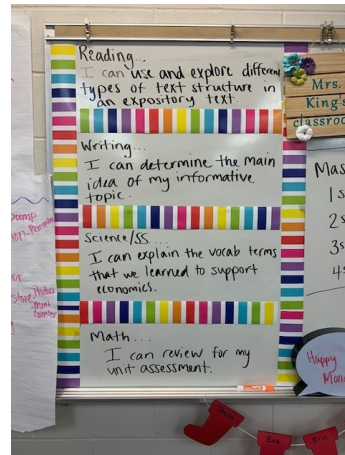 Reading...
I can use and explore different
types of text structure in
an expository text.
Writing...
I can determine the main
idea of my informative
topic.
Science/SS....
I can explain the vocab terms
that we learned to support
economics.
Math...
I can review for my
unit assessment.
Mrs.
King's
classroo
Mas
1s
2s
3s
4s
Happy
Mon
Eva
Eric